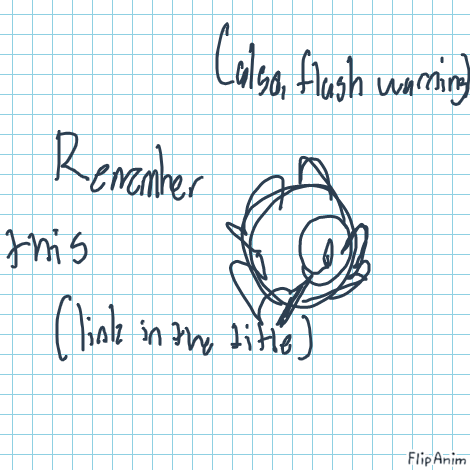 (also, flash warning)
Remember
this
(link in the title)
FlipAnim